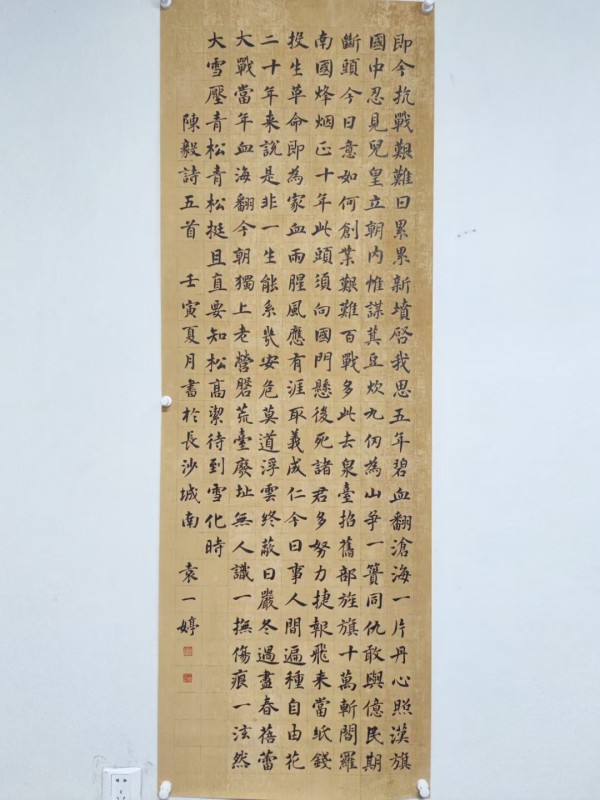 即今抗戰艱難日累累新墳啓我思五年碧血翻滄海一片丹心照漢旗
國中忍見兒皇立朝内惟謀萁豆炊九仞為山爭一簣同仇敢與億民期
斷頭今日意如何創業艱難百戰多此去泉臺招舊部旌旗十萬斬閻羅
南國烽烟正十年此頭須向國門懸後死諸君多努力捷報飛来當紙錢
投生革命即為家血雨腥風應有涯取義成仁今日事人間遍種自由花
二十年来說是非一生能系幾安危莫道浮雲終蔽日嚴冬過盡春蓓蕾
大戰當年血海翻今朝獨上老營磐荒臺廢址無人識一撫傷痕一泫然
大雪壓青松青松挺且直要知松高潔待到雪化時
陳毅詩五首 壬寅夏月書於長沙城南 袁一婷